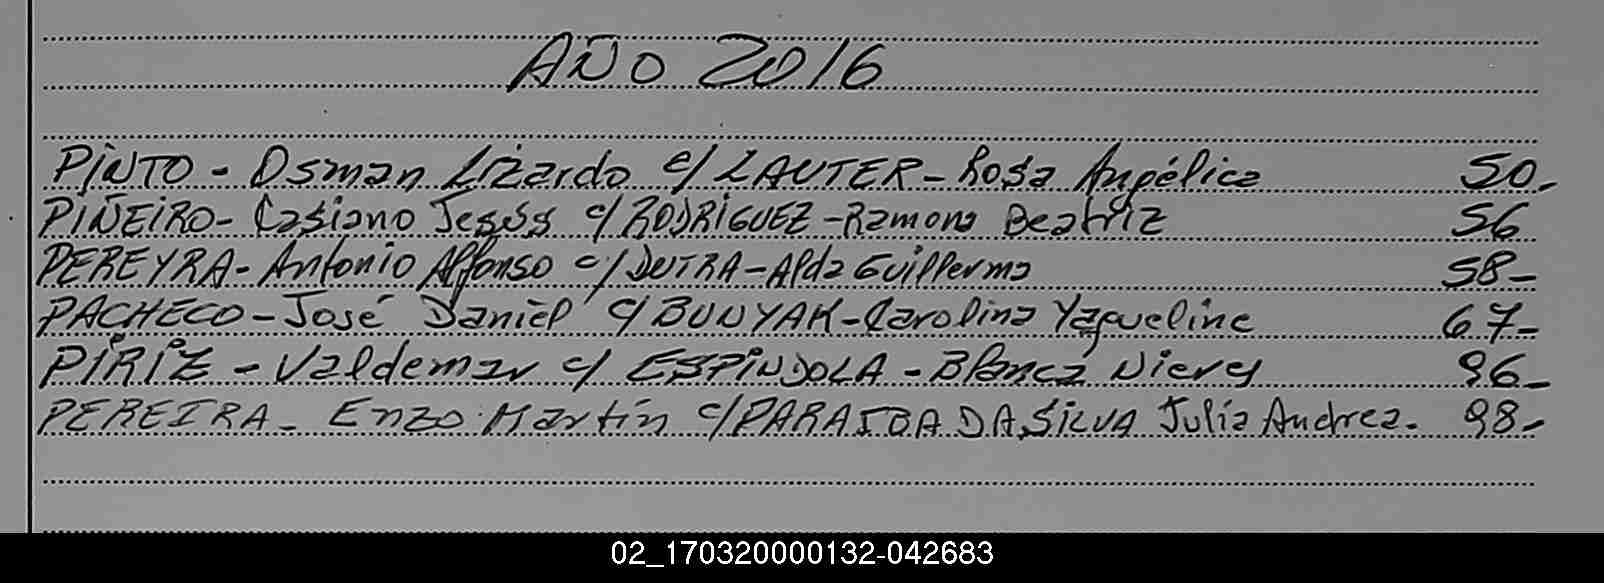 AÑO 2016
PINTO - Osman Lizardo c/ LAUTER - Rosa Angélica 50.
PIÑEIRO - Casiano Jesús c/ RODRIGUEZ - Ramona Beatriz 56
PEREYRA - Antonio Alfonso c/ DUTRA - Alda Guillerma 58-
PACHECO - José Daniel c/ BUNYAK - Carolina Yaqueline 67-
PIRIZ - Valdemar c/ ESPINDOLA - Blanca Nieves 96-
PEREIRA - Enzo Martín c/ PARAIBA DA SILVA Julia Andrea. 98-
02_170320000132-042683